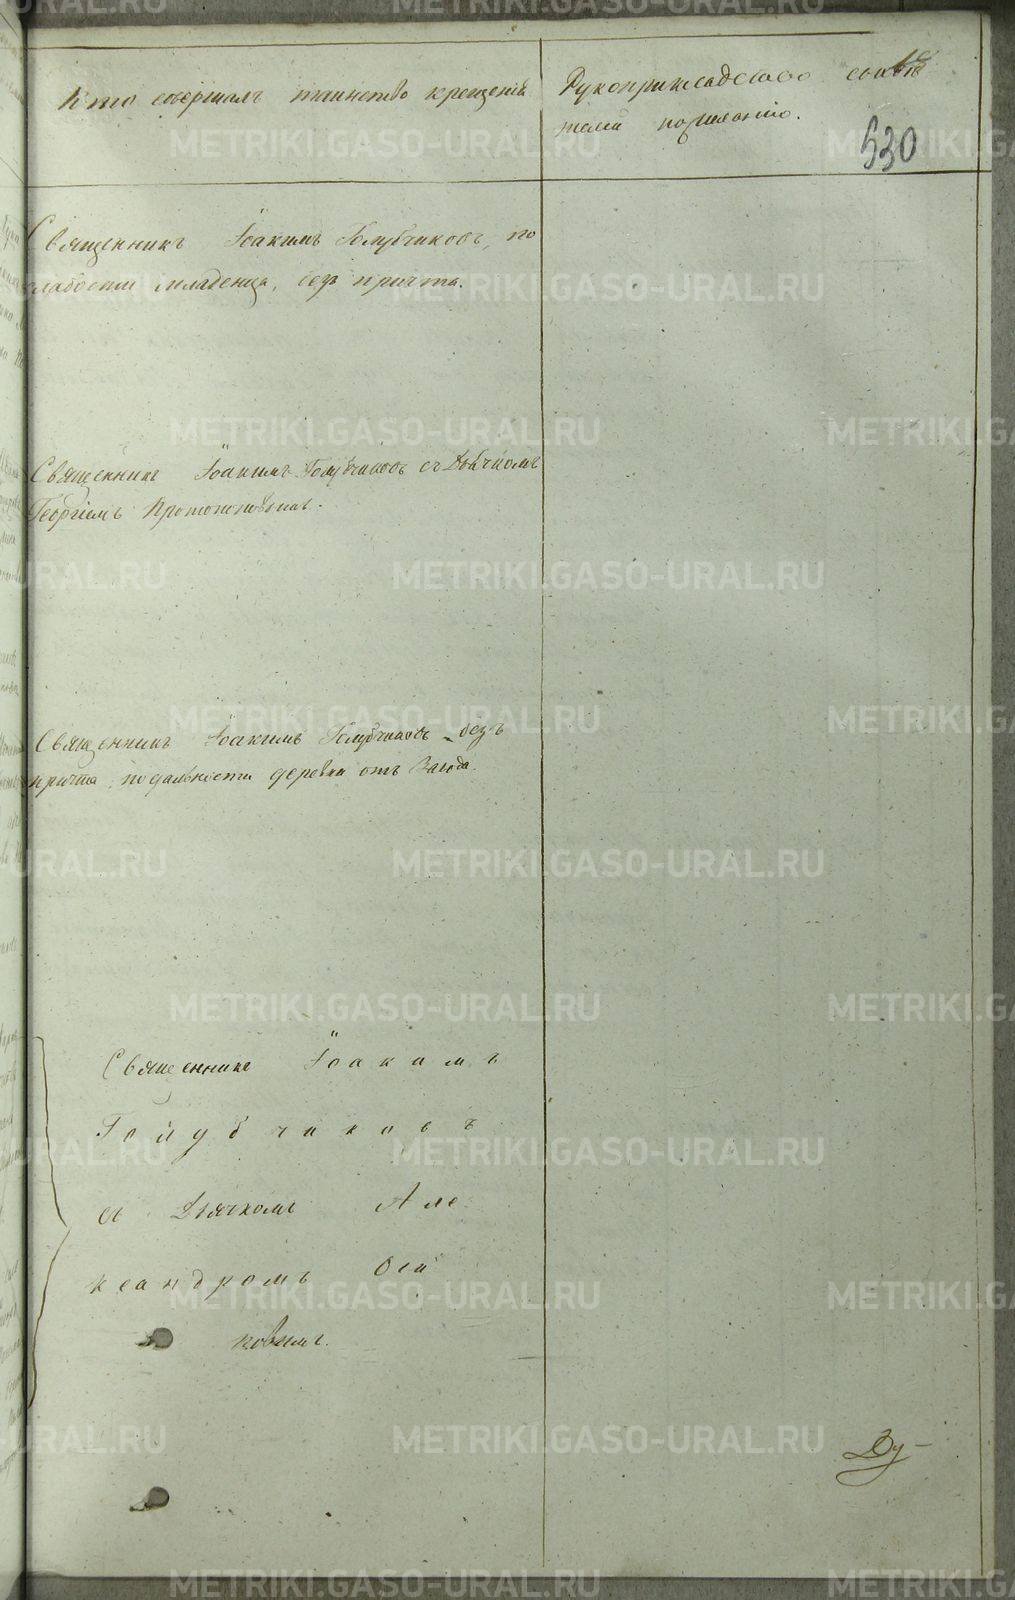 Кто совершалъ таинство крещенія
Рукоприкладство свидѣ
телей по желанію.
530
Священникъ Іоакимъ Голубчиковъ, по
слабости младенца, безъ причта.
Священникъ Іоакимъ Голубчиковъ съ Дьячкомъ
Георгіемъ Протопоповымъ.
Священникъ Іоакимъ Голубчиковъ безъ
причта, по дальности деревни отъ Завода.
Священникъ Іоакимъ
Голубчиковъ
съ Дьячкомъ Але
ксандромъ Оси
повымъ.
METRIKI.GASO-URAL.RU